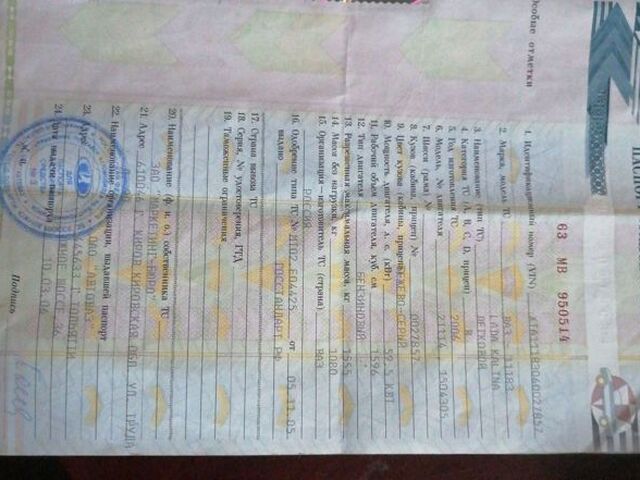 63 МВ 950514
Особые отметки
1. Идентификационный номер (VIN) XTA11183060027857
2. Марка, модель ТС ВАЗ-11183
LADA KALINA
3. Наименование (тип ТС) ЛЕГКОВОЙ
4. Категория ТС (А, В, С, D, прицеп) В
5. Год изготовления ТС 2006
6. Модель, № двигателя 21114 1504305
7. Шасси (рама) №
8. Кузов (кабина, прицеп) № 0027857
9. Цвет кузова (кабины, прицепа)
10. Мощность двигателя, л. с. (кВт) 59.5 КВТ
11. Рабочий объем двигателя, куб. см 1596
12. Тип двигателя БЕНЗИНОВЫЙ
13. Разрешенная максимальная масса, кг 1555
14. Масса без нагрузки, кг 1080
15. Организация–изготовитель ТС (страна) ВАЗ
РОССИЯ
16. Одобрение типа ТС № от 05.11.05
выдано ГОССТАНДАРТ РФ
17. Страна вывоза ТС
18. Серия, № удостоверения, ГТД
19. Таможенные ограничения
20. Наименование (ф. и. о.) собственника ТС
ЗАО "МАРКЕТИНГ-БЮРО"
21. Адрес КИРОВ КИРОВСКАЯ ОБЛ УЛ. ТРУДА
22. Наименование организации, выдавшей паспорт
ОАО "АВТОВАЗ"
23. Адрес Г ТОЛЬЯТТИ
ЮЖНОЕ ШОССЕ 36
24. Дата выдачи паспорта 10.03.06
М. П.
Подпись